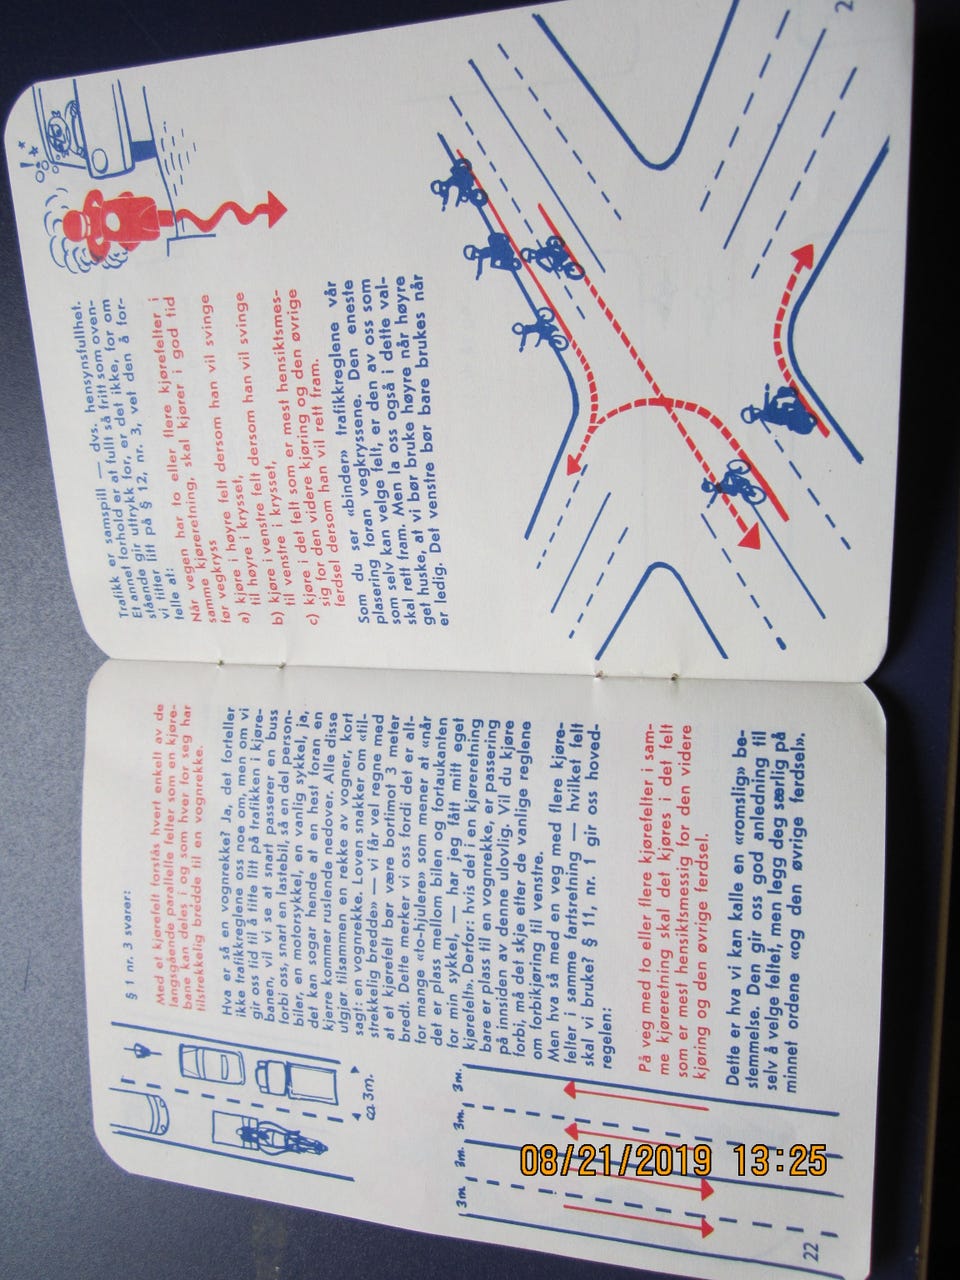 § 1 nr. 3 svarer:
Med et kjørefelt forstås hvert enkelt av de
langsgående parallelle felter som en kjøre-
bane kan deles i og som hver for seg har
tilstrekkelig bredde til en vognrekke.
Hva er så en vognrekke? Ja, det forteller
ikke trafikkreglene oss noe om, men om vi
gir oss tid til å titte litt på trafikken i kjøre-
banen, vil vi se at snart passerer en buss
forbi oss, snart en lastebil, så en del person-
biler, en motorsykkel, en vanlig sykkel, ja,
det kan sogar hende at en hest foran en
kjerre kommer ruslende nedover. Alle disse
utgjør tilsammen en rekke av vogner, kort
sagt: en vognrekke. Loven snakker om «til-
strekkelig bredde» — vi får vel regne med
at et kjørefelt bør være bortimot 3 meter
bredt. Dette merker vi oss fordi det er alt-
for mange «to-hjulere» som mener at «når
det er plass mellom bilen og fortaukanten
for min sykkel, — har jeg fått mitt eget
kjørefelt». Derfor: hvis det i en kjøreretning
bare er plass til en vognrekke, er passering
på innsiden av denne ulovlig. Vil du kjøre
forbi, må det skje etter de vanlige reglene
om forbikjøring til venstre.
Men hva så med en veg med flere kjøre-
felter i samme fartsretning — hvilket felt
skal vi bruke? § 11, nr. 1 gir oss hoved-
regelen:
På veg med to eller flere kjørefelter i sam-
me kjøreretning skal det kjøres i det felt
som er mest hensiktsmessig for den videre
kjøring og den øvrige ferdsel.
Dette er hva vi kan kalle en «romslig» be-
stemmelse. Den gir oss god anledning til
selv å velge feltet, men legg deg særlig på
minnet ordene «og den øvrige ferdsel».
ca 3m.
3m. 3m. 3m. 3m.
22
Trafikk er samspill — dvs. hensynsfullhet.
Et annet forhold er at fullt så fritt som oven-
stående gir uttrykk for, er det ikke, for om
vi titter litt på § 12, nr. 3, vet den å for-
telle at:
Når vegen har to eller flere kjørefelter i
samme kjøreretning, skal kjører i god tid
før vegkryss
a) kjøre i høyre felt dersom han vil svinge
til høyre i krysset,
b) kjøre i venstre felt dersom han vil svinge
til venstre i krysset,
c) kjøre i det felt som er mest hensiktsmes-
sig for den videre kjøring og den øvrige
ferdsel dersom han vil rett fram.
Som du ser «binder» trafikkreglene vår
plasering foran vegkryssene. Den eneste
som selv kan velge felt, er den av oss som
skal rett fram. Men la oss også i dette val-
get huske, at vi bør bruke høyre når høyre
er ledig. Det venstre bør bare brukes når
2
08/21/2019 13:25